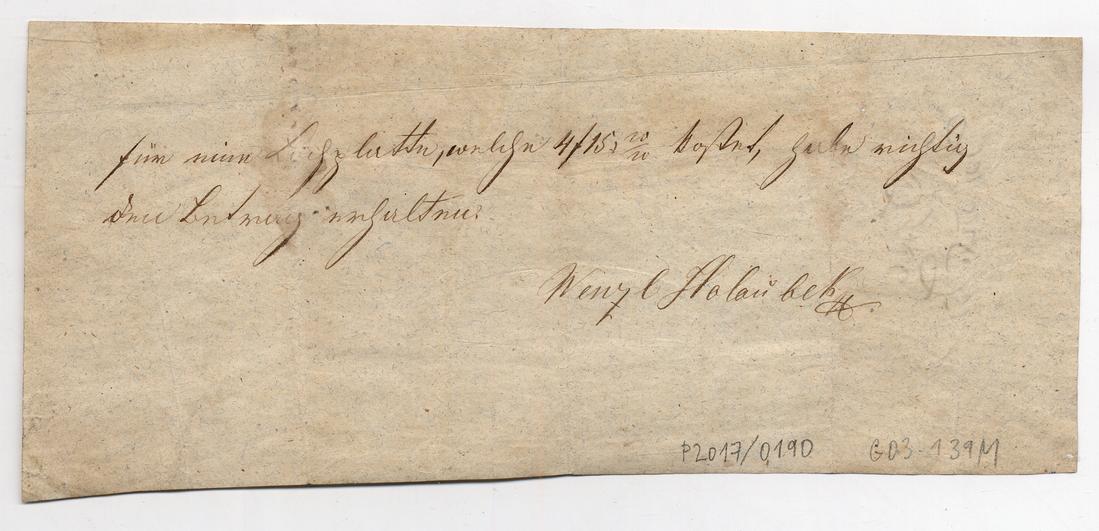 für eine Lochplatte, welche 4f 15x 10/10 kostet, habe richtig
den Betrag erhalten.
Wenzl Holaubek
P2017/0190 GD3-139M